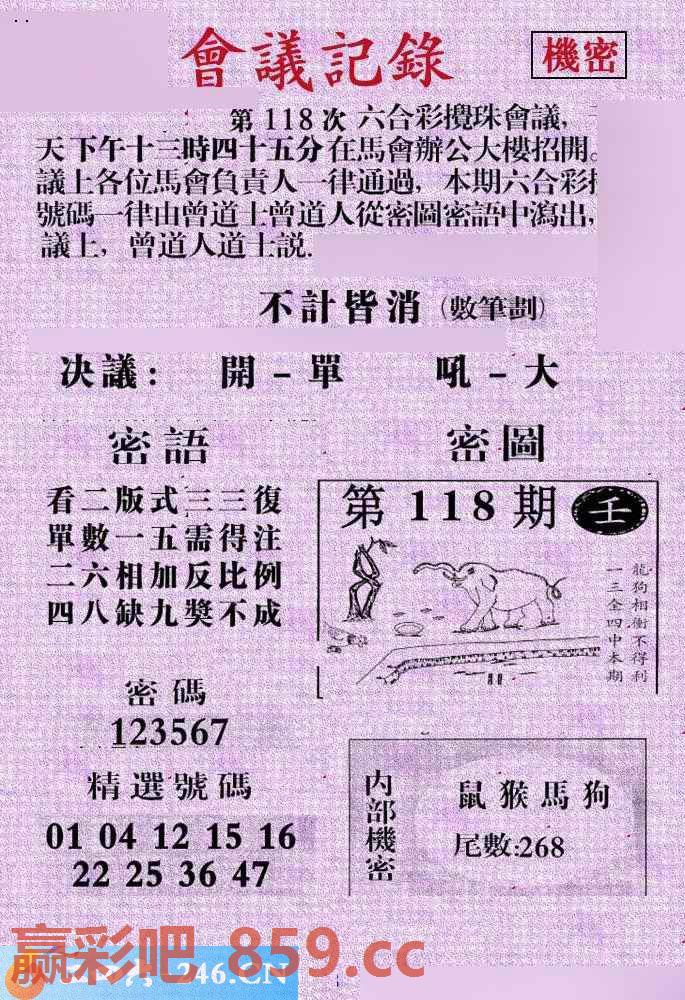 會議記錄
機密
第118次 六合彩攪珠會議,
天下午十三時四十五分在馬會辦公大樓招開。
議上各位馬會負責人一律通過, 本期六合彩
號碼一律由曾道士曾道人從密圖密語中瀉出,
議上, 曾道人道士説.
不計皆消 (數筆劃)
决議: 開-單 吼-大
密語
看二版式三三復
單數一五需得注
二六相加反比例
四八缺九獎不成
密圖
第118期 壬
龍狗相衝不得利
一三金四中本期
密碼
123567
精選號碼
01 04 12 15 16
22 25 36 47
内部機密
鼠猴馬狗
尾數:268
赢彩吧 859.cc
246.CN